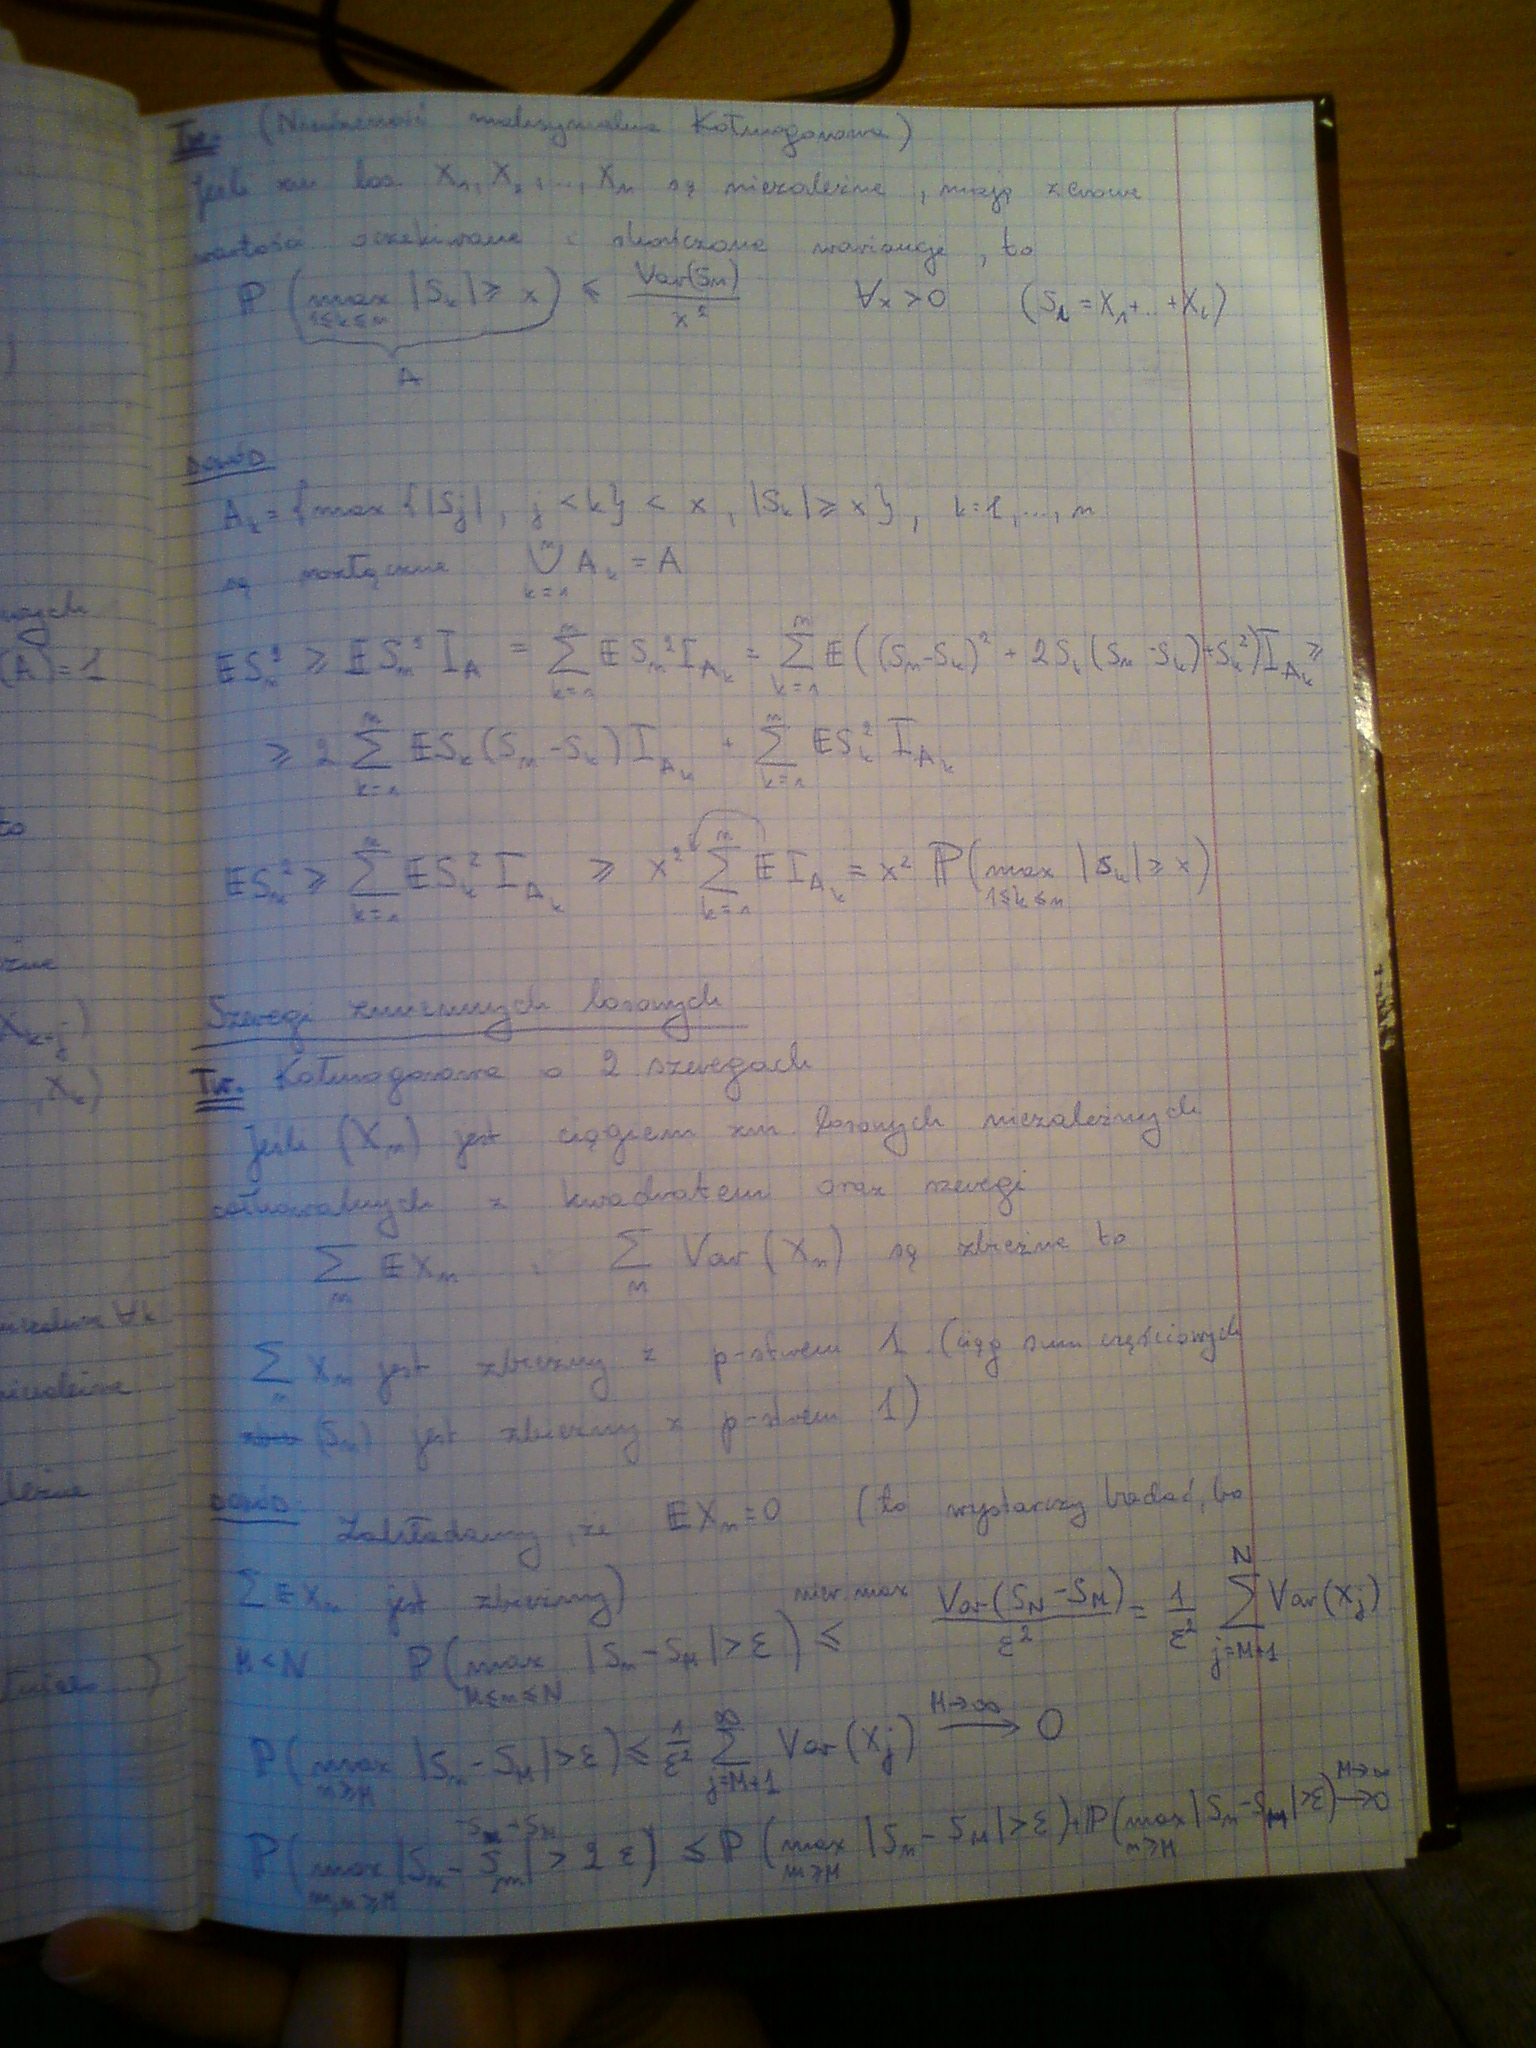 Tw. (Nierówność maksymalna Kołmogorowa)
Jeśli zm los. X₁, X₂, ..., Xₙ są niezależne, mają zerowe
wartości oczekiwane i skończone wariancje, to
ℙ (max_{1≤k≤n} |Sₖ| ≥ x) ≤ Var(Sₙ)/x² ∀x>0 (Sₖ = X₁+...+Xₖ)
A
DOWÓD
Aₖ = {max {|Sⱼ|, j<k} < x, |Sₖ| ≥ x}, k=1,...,n
są rozłączne ⋃_{k=1}^{n} Aₖ = A
𝔼Sₙ² ≥ 𝔼Sₙ² I_A = ∑_{k=1}^{n} 𝔼Sₙ² I_{Aₖ} = ∑_{k=1}^{n} 𝔼((Sₙ-Sₖ)² + 2Sₖ(Sₙ-Sₖ)+Sₖ²)I_{Aₖ} ≥
≥ 2 ∑_{k=1}^{n} 𝔼Sₖ(Sₙ-Sₖ)I_{Aₖ} + ∑_{k=1}^{n} 𝔼Sₖ² I_{Aₖ}
𝔼Sₙ² ≥ ∑_{k=1}^{n} 𝔼Sₖ² I_{Aₖ} ≥ x² ∑_{k=1}^{n} 𝔼I_{Aₖ} = x² ℙ(max_{1≤k≤n} |Sₖ| ≥ x)
Szeregi zmiennych losowych
Tw. Kołmogorowa o 2 szeregach
Jeśli (Xₙ) jest ciągiem zm. losowych niezależnych
całkowalnych z kwadratem oraz szeregi
∑ₙ 𝔼Xₙ i ∑ₙ Var(Xₙ) są zbieżne to
∑ₙ Xₙ jest zbieżny z p-stwem 1. (ciąg sum częściowych
(Sₙ) jest zbieżny z p-stwem 1)
DOWÓD
Zakładamy, że 𝔼Xₙ=0 (to wystarczy badać, bo
∑𝔼Xₙ jest zbieżny)
M<N ℙ(max_{M≤n≤N} |Sₙ-S_M|>ε) ≤ nier. max Var(S_N-S_M)/ε² = 1/ε² ∑_{j=M+1}^{N} Var(Xⱼ)
ℙ(max_{n≥M} |Sₙ-S_M|>ε) ≤ 1/ε² ∑_{j=M+1}^{∞} Var(Xⱼ) →^{M→∞} 0
-S_M+S_M
ℙ(max_{m,n≥M} |Sₙ-Sₘ|>2ε) ≤ ℙ(max_{n≥M} |Sₙ-S_M|>ε)+ℙ(max_{m≥M} |Sₘ-S_M|>ε) →^{M→∞} 0
(A)=1
to